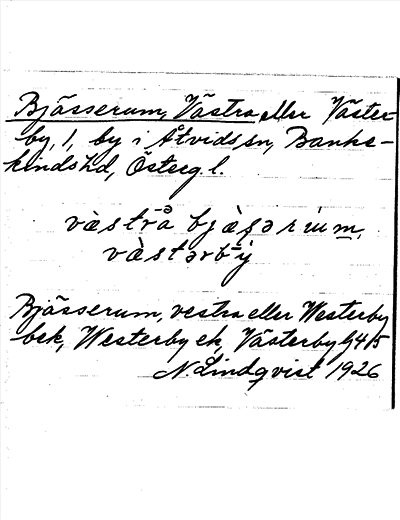 Bjässerum, Västra eller Väster-
by, 1, by i Åtvids sn, Banke-
kinds hd, Österg. l.
vàstrå bjàsərum,
vàstərbý
Bjässerum, vestra eller Westerby
bek, Westerby ek, Västerby G45
N. Lindqvist 1926